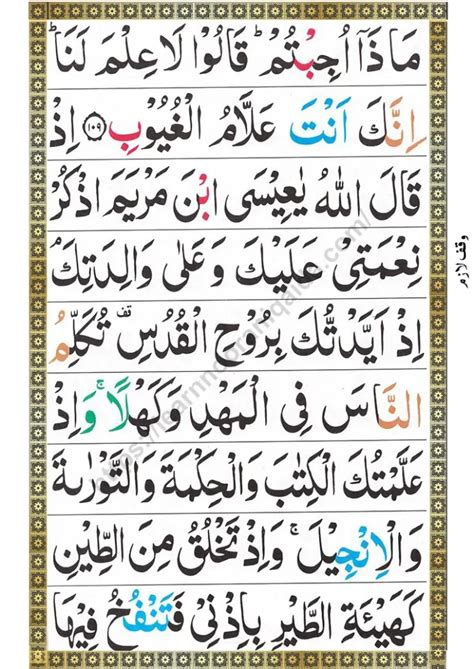 مَاذَاۤ اُجِبۡتُمۡؕ قَالُوۡا لَا عِلۡمَ لَنَاؕ
اِنَّكَ اَنۡتَ عَلَّامُ الۡغُيُوۡبِ ۝۱۰۹ اِذۡ
قَالَ اللّٰهُ يٰعِيۡسَى ابۡنَ مَرۡيَمَ اذۡكُرۡ
نِعۡمَتِىۡ عَلَيۡكَ وَعَلٰى وَالِدَتِكَ
اِذۡ اَيَّدتُّكَ بِرُوۡحِ الۡقُدُسِ قف تُكَلِّمُ
النَّاسَ فِى الۡمَهۡدِ وَكَهۡلًا ۚ وَاِذۡ
عَلَّمۡتُكَ الۡكِتٰبَ وَالۡحِكۡمَةَ وَالتَّوۡرٰٮةَ
وَالۡاِنۡجِيۡلَ ۚ وَاِذۡ تَخۡلُقُ مِنَ الطِّيۡنِ
كَهَيۡئَةِ الطَّيۡرِ بِاِذۡنِىۡ فَتَنۡفُخُ فِيۡهَا
وقف لازم